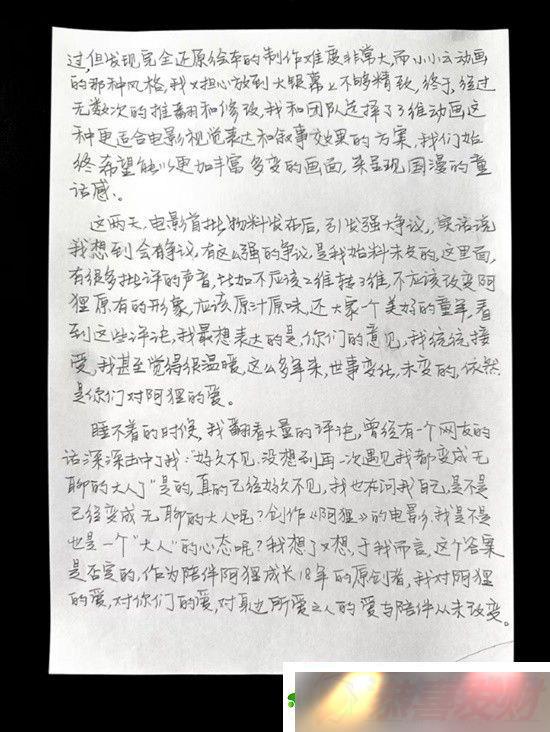 过,但发现完全还原绘本的制作难度非常大,而小小云动画
的那种风格,我又担心放到大银幕上不够精致,终于,经过
无数次的推翻和修改,我和团队选择了3维动画这
种更适合电影视觉表达和叙事效果的方案,我们始
终希望能以更加丰富多变的画面,来呈现国漫的童
话感。
这两天,电影首批物料发布后,引发强大争议,实话说
我想到会有争议,有这么强的争议是我始料未及的,这里面,
有很多批评的声音,比如不应该2维转3维,不应该改变阿
狸原有的形象,应该原汁原味,还大家一个美好的童年,看
到这些评论,我最想表达的是,你们的意见,我统统接
受,我甚至觉得很温暖,这么多年来,世事变化,未变的,依然
是你们对阿狸的爱。
睡不着的时候,我翻看大量的评论,曾经有一个网友的
话深深击中了我:"好久不见,没想到再一次遇见我都变成无
聊的大人了"是的,真的已经好久不见,我也在问我自己,是不是
已经变成无聊的大人呢?创作《阿狸》的电影,我是不是
也是一个"大人"的心态呢?我想了又想,于我而言,这个答案
是否定的,作为陪伴阿狸成长18年的原创者,我对阿狸
的爱,对你们的爱,对身边所爱之人的爱与陪伴从未改变。